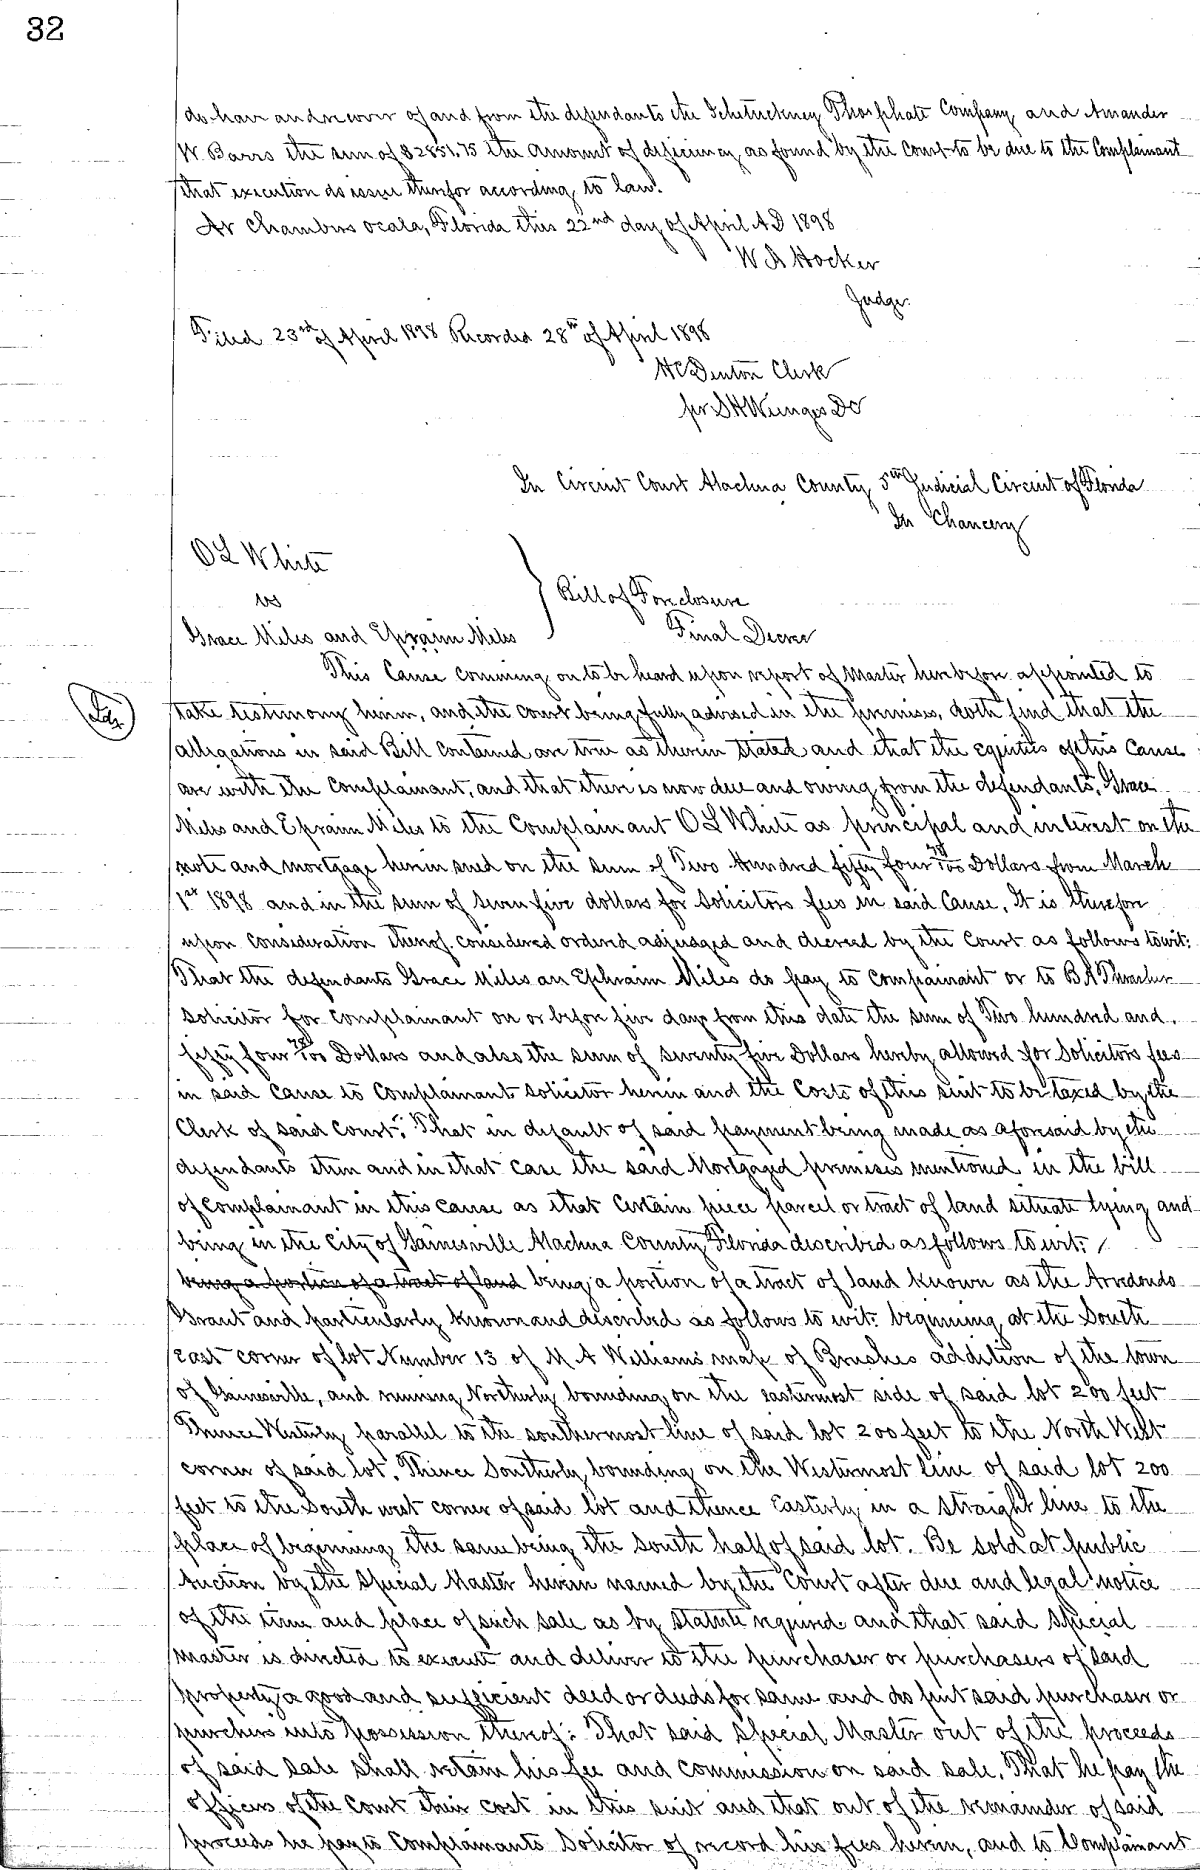 32
do have and recover of and from the defendants the Ichetuckney Phosphate Company and Amander
W. Barrs the sum of $2851.75 the amount of deficiency as found by the Court to be due to the Complainant
that execution do issue therefor according to law.
At Chambers Ocala, Florida this 22nd day of April AD 1898
W A Hocker
Judge.
Filed 23rd of April 1898 Recorded 28th of April 1898
HC Denton Clerk
pr S H Wienges DC
In Circuit Court Alachua County 5th Judicial Circuit of Florida
In Chancery
O L White
vs
Bill of Foreclosure
Grace Miles and Epraim Miles
Final Decree
This Cause comming on to be heard upon report of Master herebefore appointed to
take testimony herein, and the court being fully advised in the premises, doth find that the
allegations in said Bill contained are true as therein stated and that the equities of this Cause
are with the Complainant, and that there is now due and owing from the defendants, Grace
Miles and Epraim Miles to the Complainant O L White as principal and interest on the
note and mortgage herein sued on the sum of Two Hundred fifty four 78/100 Dollars from March
1st 1898 and in the sum of seven five dollars for Solicitors fees in said Cause, It is therefore
upon consideration thereof considered ordered adjudged and decreed by the Court as follows towit:
That the defendants Grace Miles an Ephraim Miles do pay to compainant or to B A Thrasher
Solicitor for complainant on or before five days from this date the sum of Two hundred and
fifty four 78/100 Dollars and also the sum of seventy five Dollars hereby allowed for Solicitors fees
in said Cause to Complainant Solicitor herein and the Costs of this suit to be taxed by the
Clerk of said Court; That in default of said payment being made as aforesaid by the
defendants then and in that case the said Mortgaged premises mentioned in the bill
of complainant in this cause as that certain piece parcel or tract of land situate lying and
being in the City of Gainesville Alachua County Florida described as follows to wit:
being a portion of a tract of land being a portion of a tract of land known as the Arredondo
Grant and particularly known and described as follows to wit: beginning at the South
east corner of lot Number 13 of M A Williams map of Brushes addition of the town
of Gainesville, and running Northerly bounding on the easternmost side of said lot 200 feet
Thence Westerly parallel to the southernmost line of said lot 200 feet to the North West
corner of said lot, Thence Southerly bounding on the Westernmost line of said lot 200
feet to the South west corner of said lot and thence Easterly in a straight line to the
place of beginning the same being the south half of said lot. Be sold at public
Auction by the Special Master herein named by the Court after due and legal notice
of the time and place of such sale as by statute required and that said Special
master is directed to execute and deliver to the purchaser or purchasers of said
property a good and sufficient deed or deeds for same and do put said purchaser or
purchers into possession thereof: That said Special Master out of the proceeds
of said sale shall retain his fee and commission on said sale, That he pay the
officers of the Court their cost in this suit and that out of the remainder of said
proceeds he pay to Complainants Solicitor of record his fees herein, and to Complainant